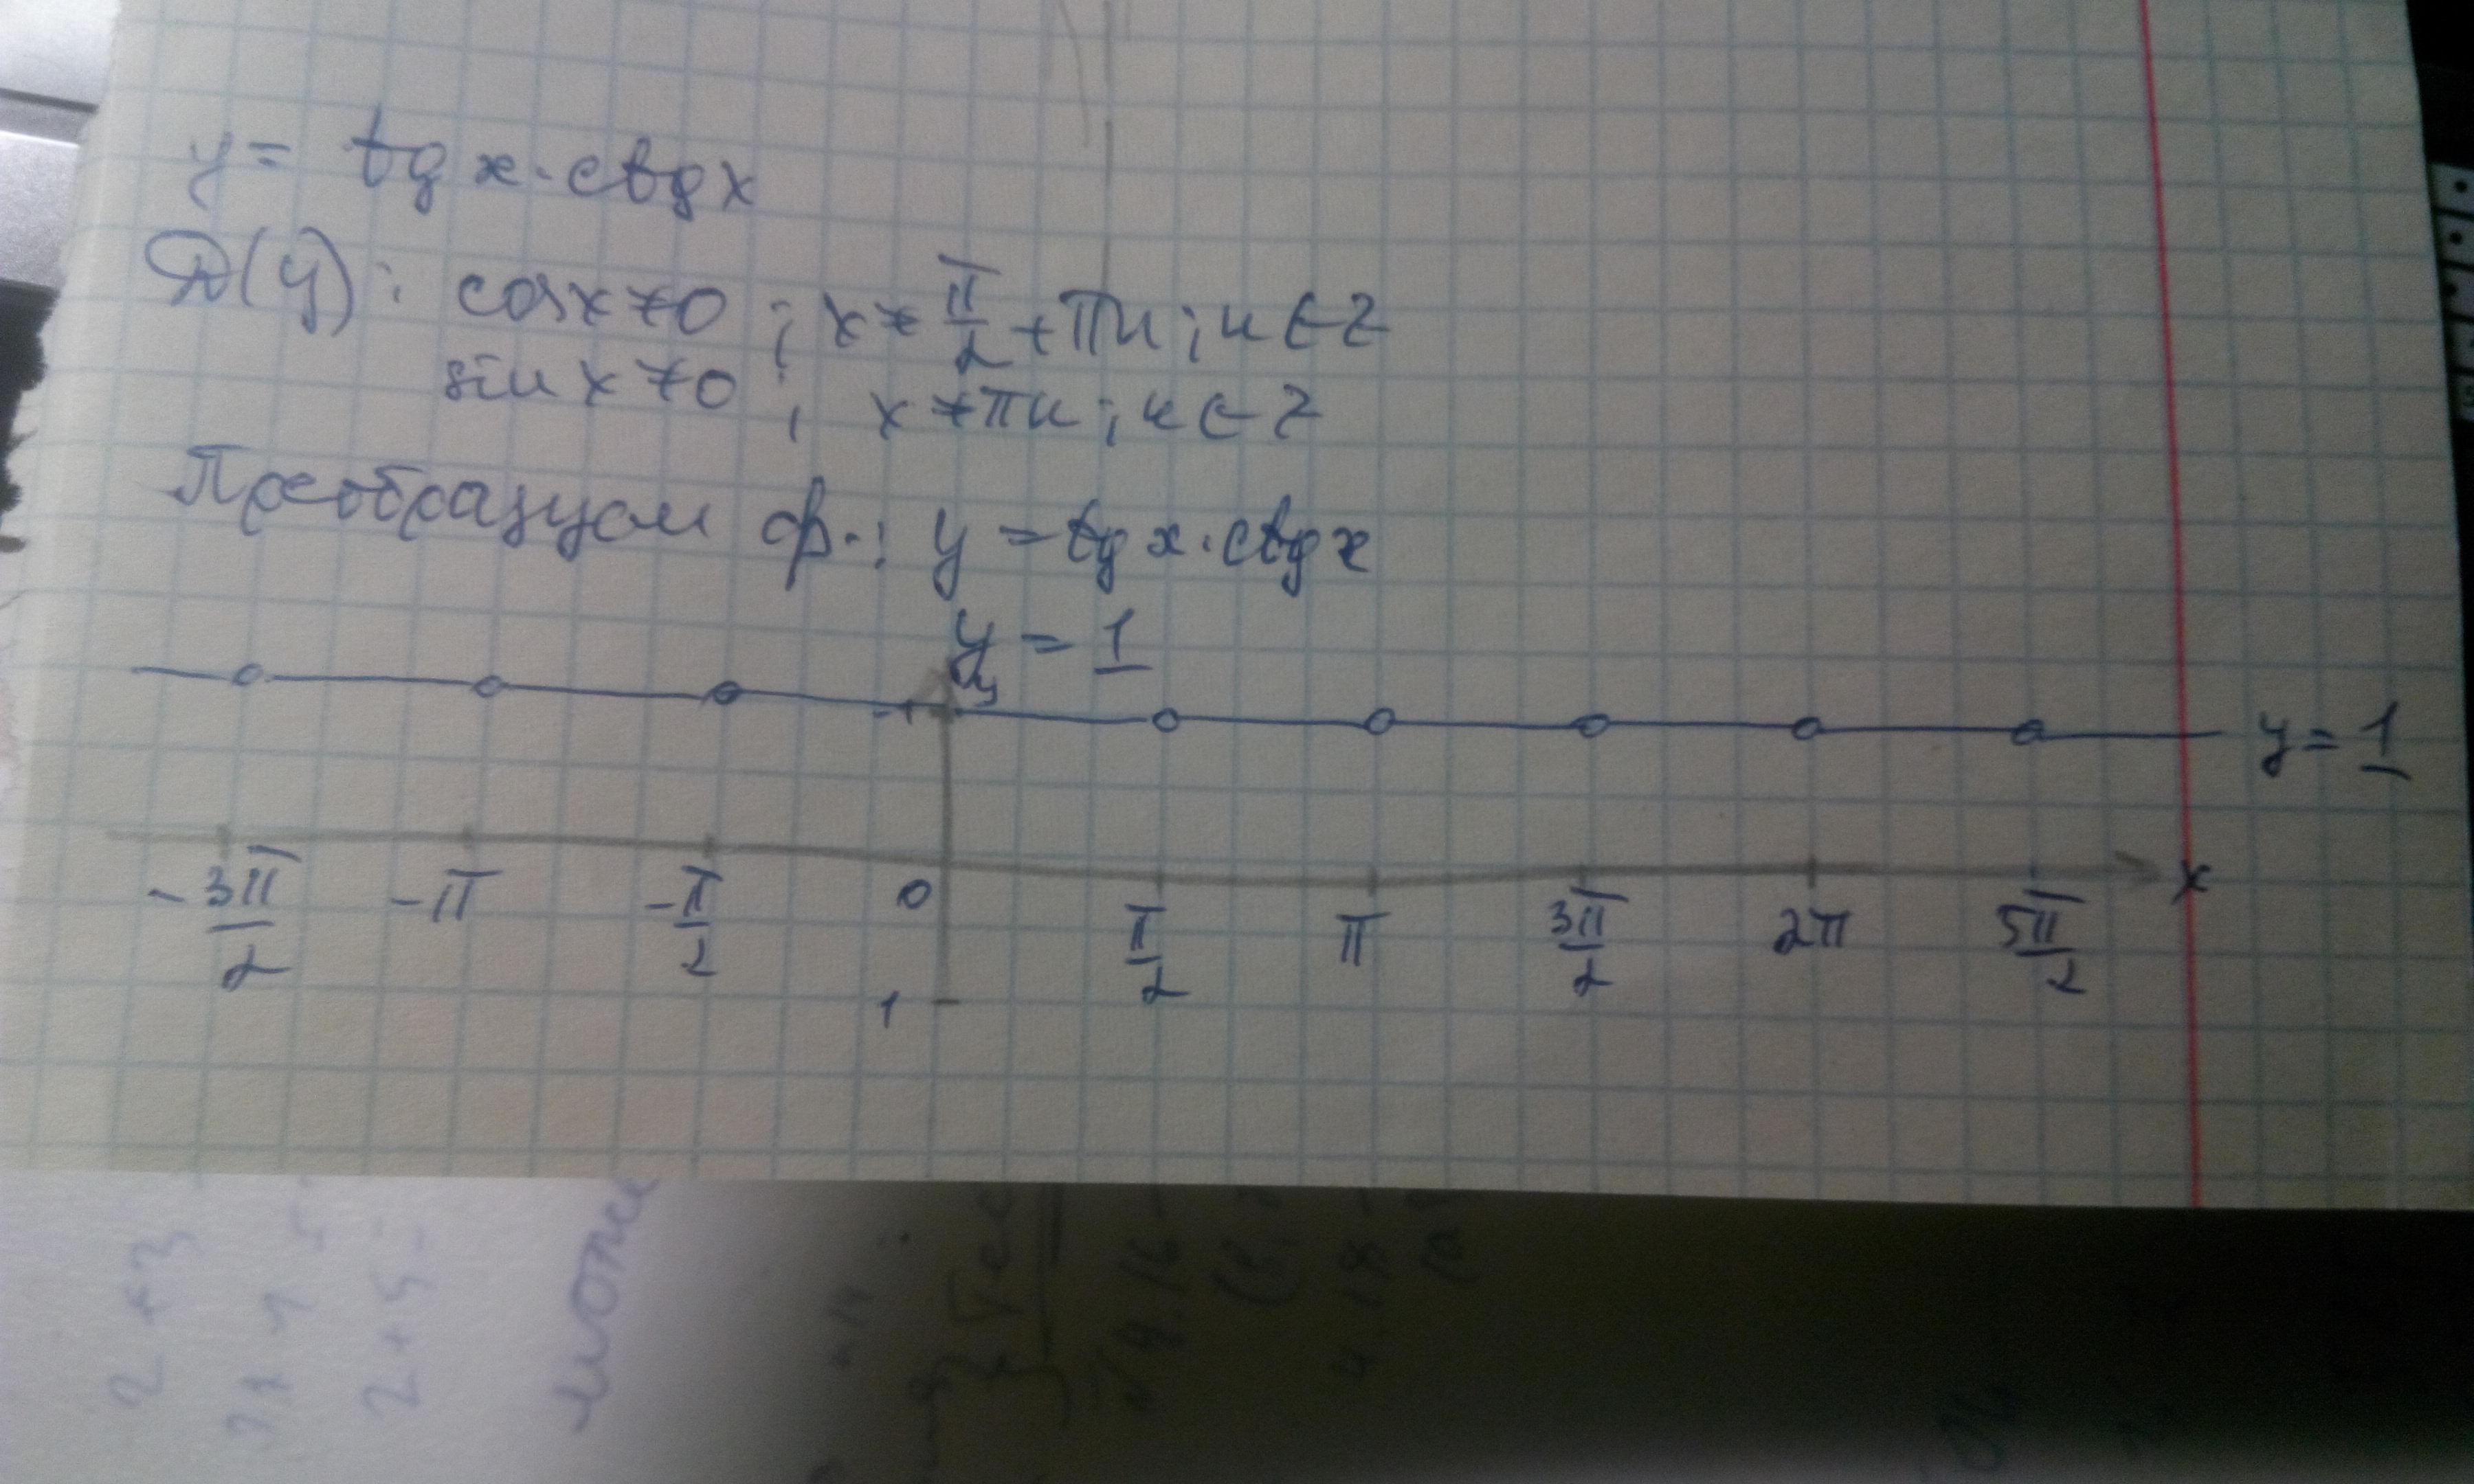 y = tg x · ctg x
D(y): cos x ≠ 0 ; x ≠ π/2 + πn ; n ∈ Z
sin x ≠ 0 ; x ≠ πn ; n ∈ Z
Преобразуем ф.: y = tg x · ctg x
y = 1
y
-1
y = 1
-3π/2 -π -π/2 0 π/2 π 3π/2 2π 5π/2 x
1